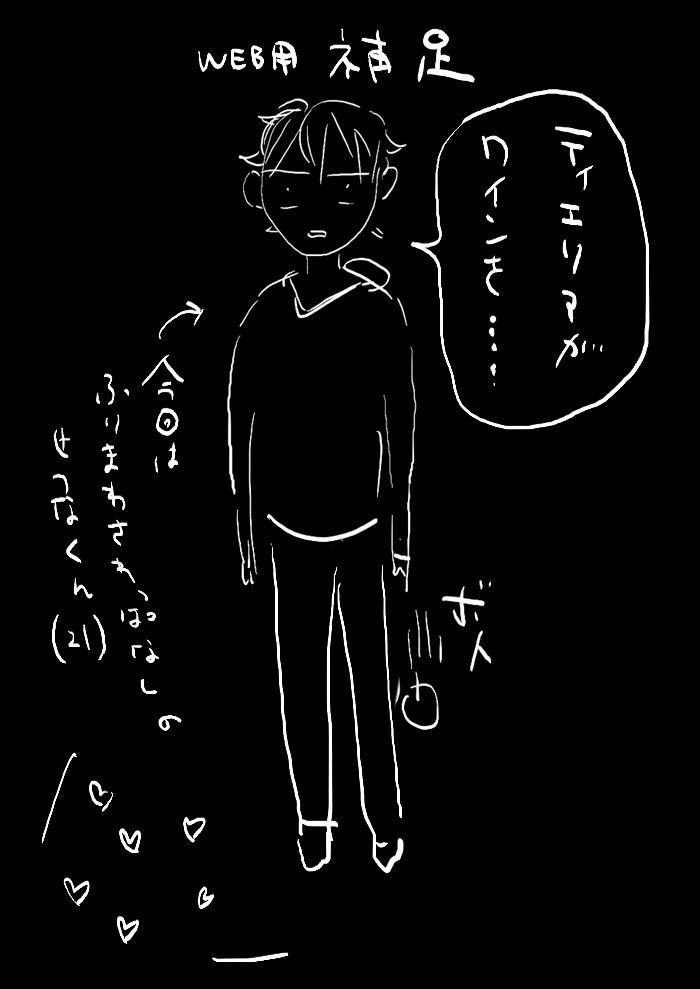 WEB用 補足
ティエリアが…
ワインを……
今回は
ふりまわされっぱなしの
せつなくん(21)
ボト